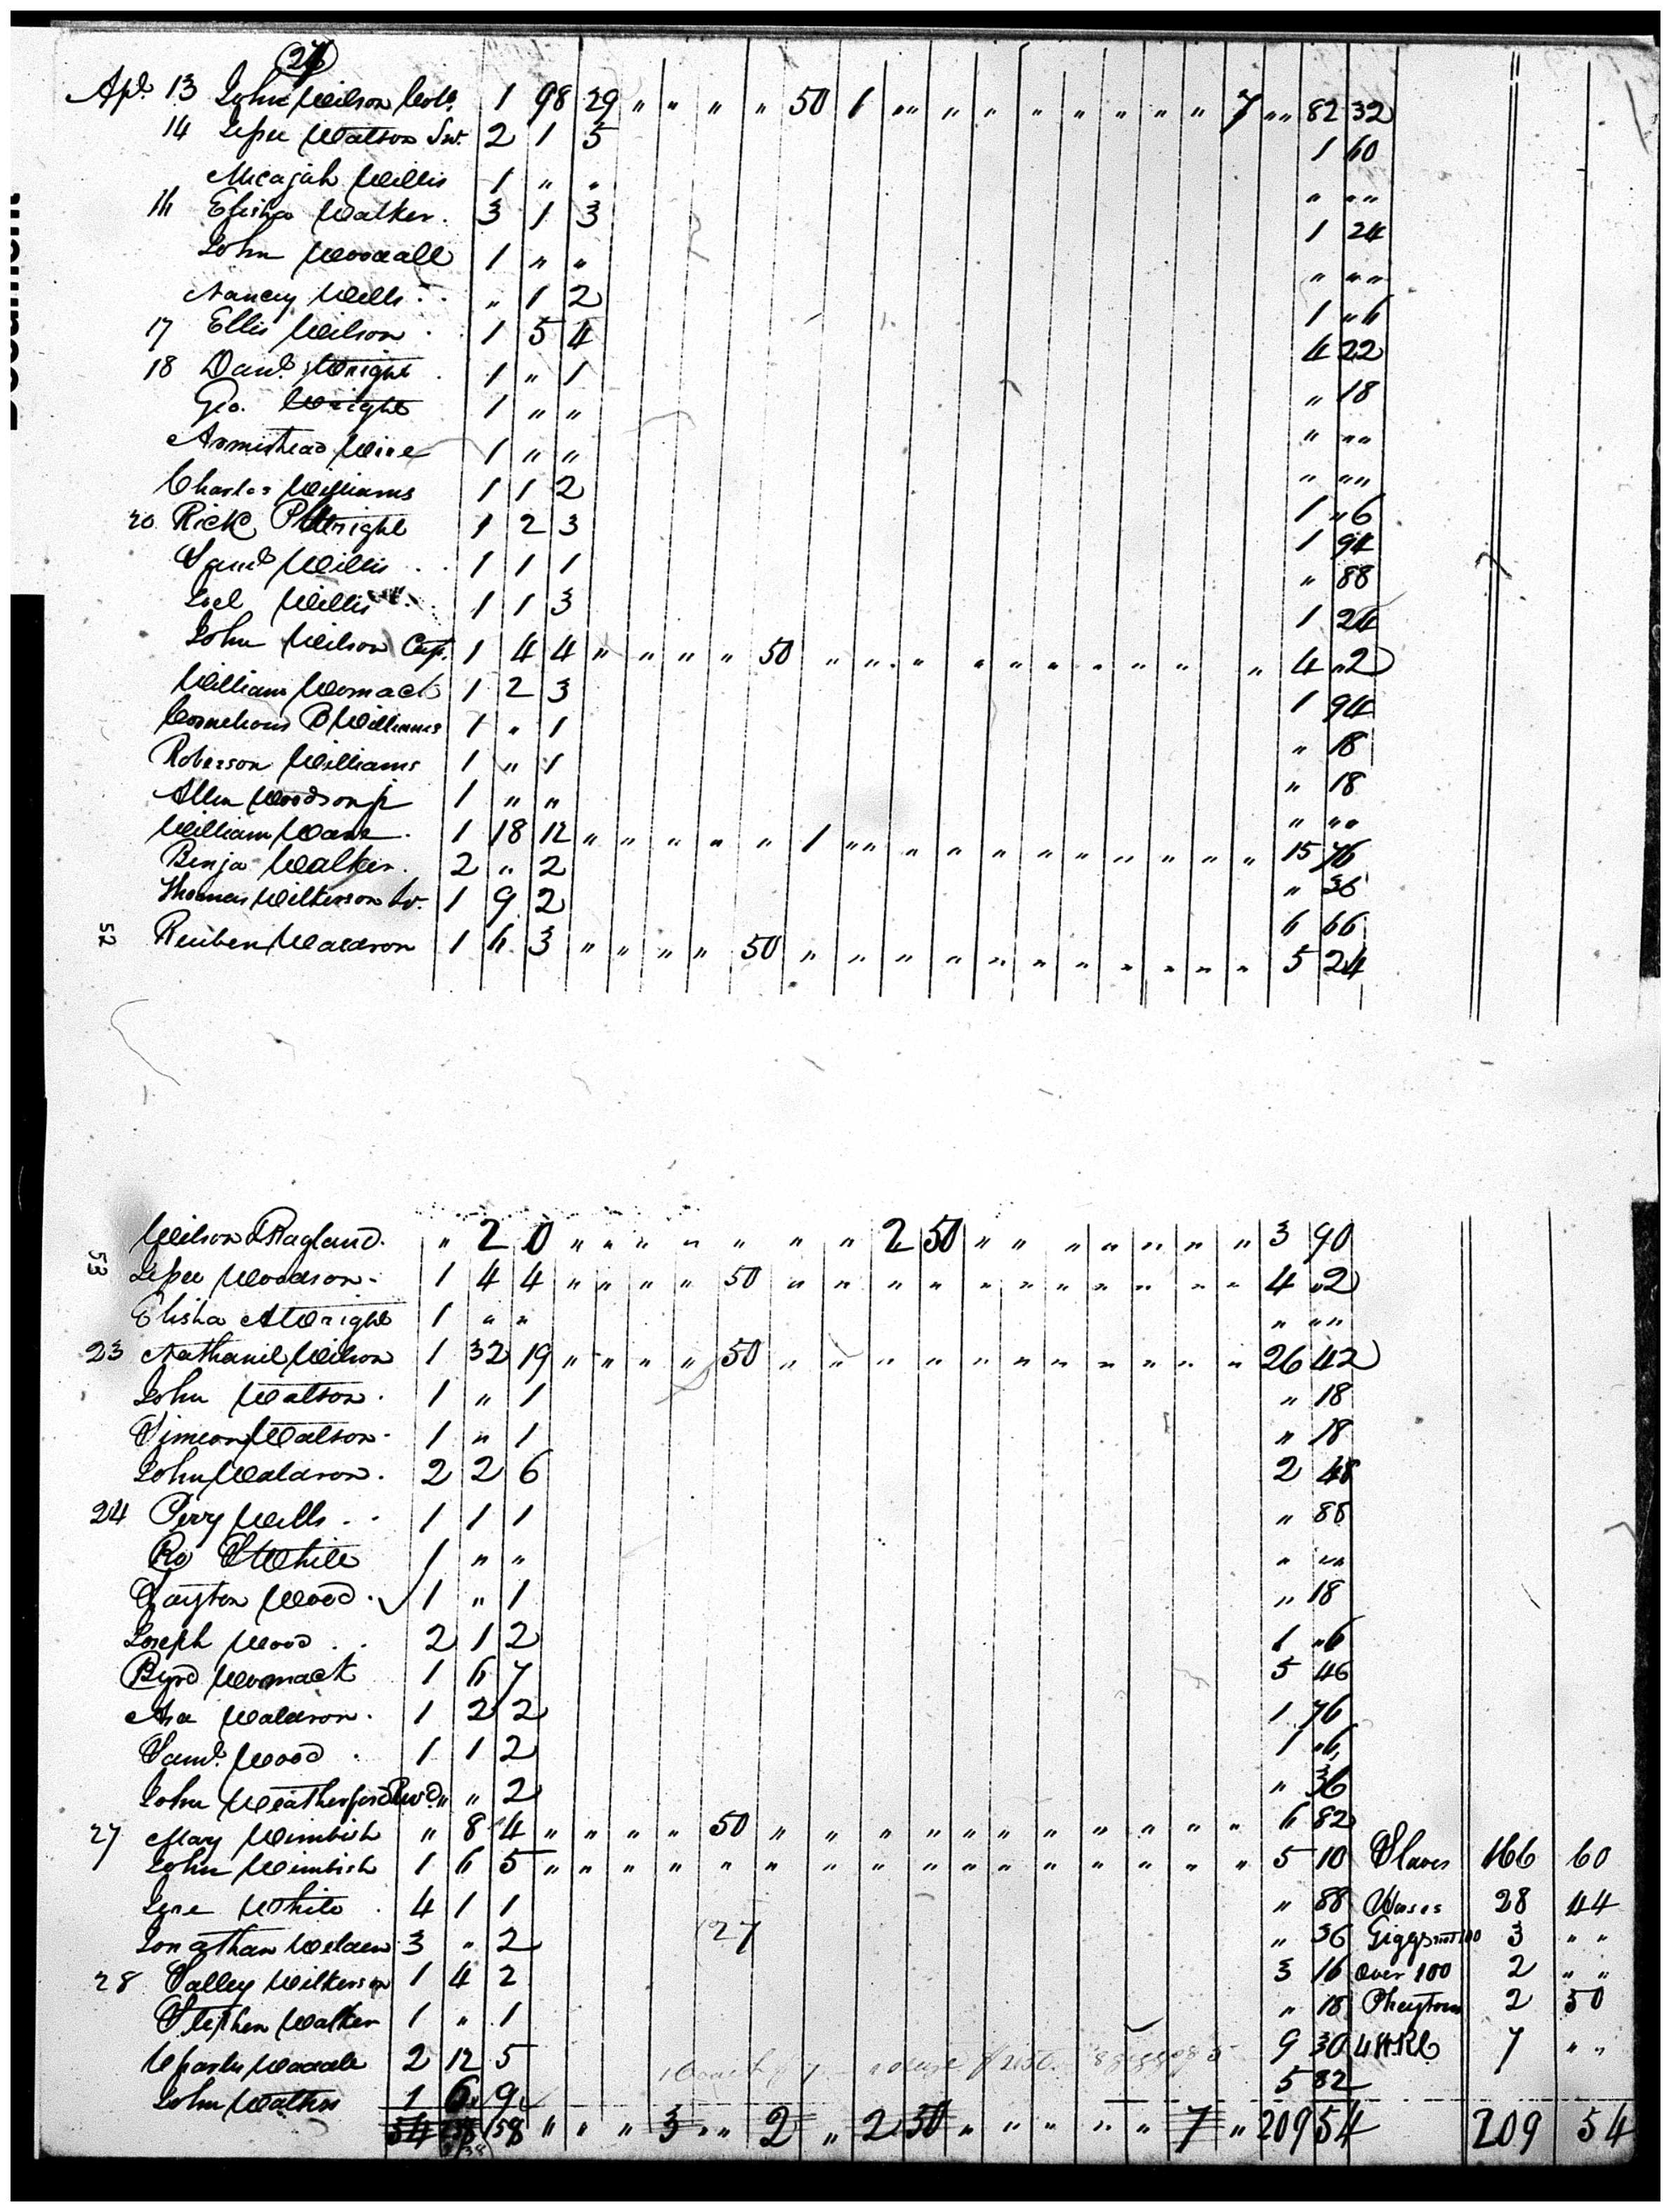 24
Apl. 13 John Wilson Colo. 1 98 29 " " " " 50 1 " " " " " " " " " " 7 " " 82 32
14 Jesse Watson Snr. 2 1 5 1 60
Micajah Willis 1 " " " " "
16 Elisha Walker. 3 1 3 1 24
John Woodall 1 " " " " "
Nancy Wells " 1 2 1 " 6
17 Ellis Wilson 1 5 4 4 22
18 Danl. Wright 1 " 1 " 18
Geo. Wright 1 " " " " "
Armistead 1 " " " " "
Charles Williams 1 1 2 1 " 6
20 Rich P Wright 1 2 3 1 94
Saml Willis 1 1 1 " 88
Joel Willis 1 1 3 1 24
John Wilson Capt. 1 4 4 " " " " 50 " " " " " " " " " " " 4 " 2
William Womack 1 2 3 1 94
Cornelious B Williams 1 " 1 " 18
Roberson Williams 1 " 1 " 18
Allen Woodson jr 1 " " " " "
William Ware 1 18 12 " " " " " 1 " " " " " " " " " " " 15 76
Benja Walker. 2 " 2 " 36
Thomas Wilkerson Sr. 1 9 2 6 66
52 Reuben Waldron 1 6 3 " " " " 50 " " " " " " " " " " " 5 24
Wilson & Ragland. " 2 0 " " " " " " " 2 50 " " " " " " " 3 90
53 Jesse Woodson 1 4 4 " " " " 50 " " " " " " " " " " " 4 " 2
Elisha A Wright 1 " " " " "
23 Nathaniel Wilson 1 32 19 " " " " 50 " " " " " " " " " " " 26 42
John Watson. 1 " 1 " 18
Simeon Watson 1 " 1 " 18
John Waldron. 2 2 6 2 48
24 Perry Wells 1 1 1 " 88
Ro S White 1 " " " " "
Layton Wood. 1 " 1 " 18
Joseph Wood 2 1 2 1 " 6
Byrd Womack 1 6 7 5 46
Asa Waldron. 1 2 2 1 76
Saml. Wood 1 1 2 1 " 6
John Weatherford Revd. " " 2 " 36
27 Mary Wimbish " 8 4 " " " " 50 " " " " " " " " " " " 6 82
John Wimbish 1 6 5 " " " " " " " " " " " " " " " " 5 10 Slaves 166 60
White 4 1 1 " 88 Horses 28 44
Jonathan 3 " 2 27 " 36 Giggs not 100 3 " "
28 Salley Wilkerson 1 4 2 3 16 over 100 2 " "
Stephen Walker 1 " 1 " 18 Pheytons 2 50
Charles Waddle 2 12 5 9 30 4 H R C 7 " "
John Watkins 1 6 9 5 82
54 158 " " " 3 " " 2 " 2 50 " " " " " 7 " 209 54 209 54